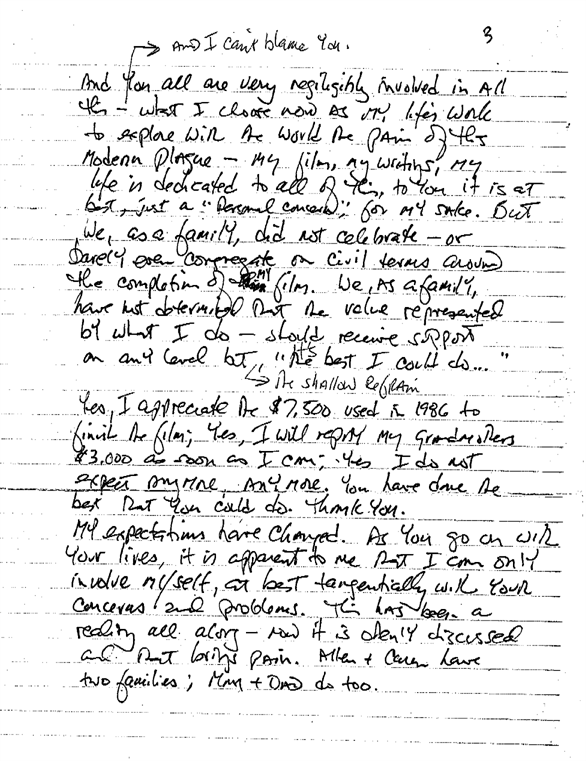 3
And I can't blame You.
And You all are very negligibly involved in All
this - what I choose now as my life's work
to explore with the world the pain of this
Modern Plague - My film, my writings, my
life is dedicated to all of this, to You it is at
best, just a "Personal concern," for my sake. But
We, as a family, did not celebrate - or
barely even congregate on civil terms around
the completion of my film. We, as a family,
have not determined that the value represented
by what I do - should receive support
on any level but, "it's the best I could do..."
the shallow Refrain
Yes, I appreciate the $7,500 used in 1986 to
finish the film; Yes, I will repay my Grandmothers
$3,000 as soon as I can; Yes I do not
expect anymore, Any more. You have done the
best that You could do. Thank You.
My expectations have changed. As You go on with
Your lives, it is apparent to me that I can only
involve my/self, at best tangentially with Your
concerns and problems. This has been a
reality all along - now it is openly discussed
and that brings pain. Allen + Caren have
two families; Mom + Dad do too.